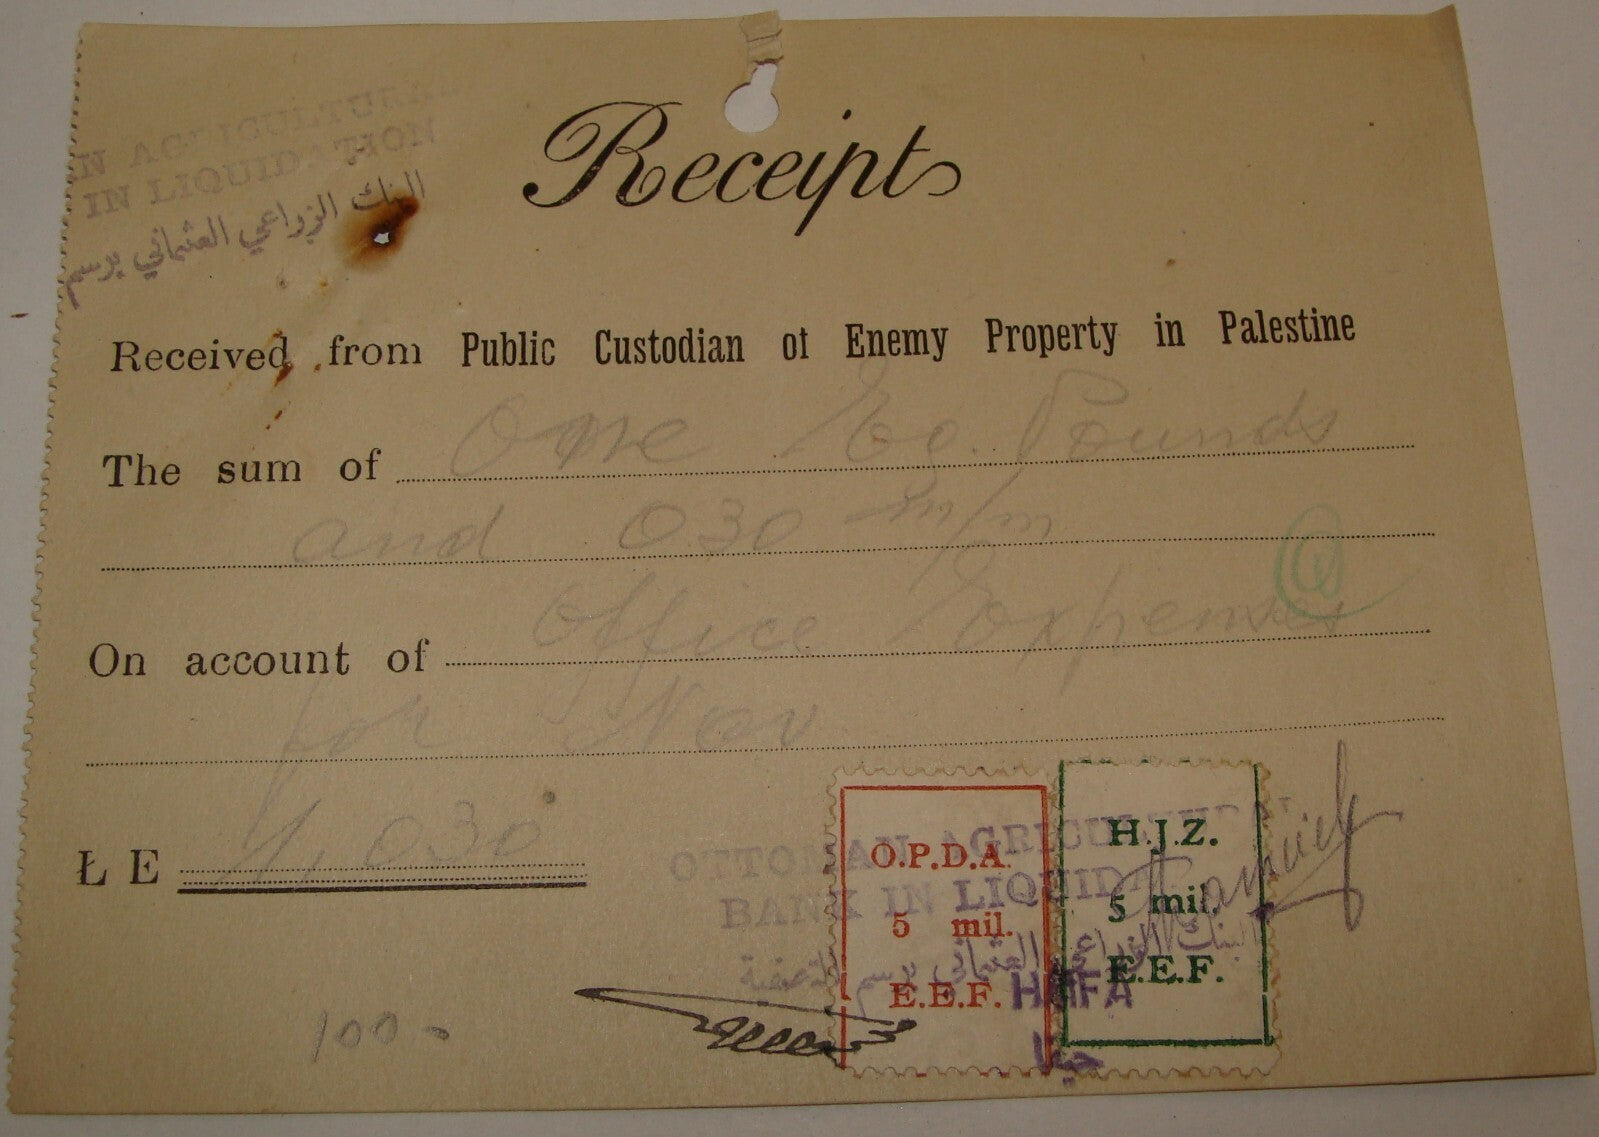 N AGRICULTURAL
IN LIQUIDATION
البنك الزراعي العثماني برسم
Receipt
Received from Public Custodian of Enemy Property in Palestine
The sum of One Eg. Pounds
and 030 m/m
On account of Office Expenses
for Nov.
Ł E 1,030
OTTOMAN AGRICULTURAL
BANK IN LIQUIDA
البنك الزراعي العثماني برسم التصفية
HAIFA
حيفا
O.P.D.A.
5 mil.
E.E.F.
H.J.Z.
5 mil.
E.E.F.
100-